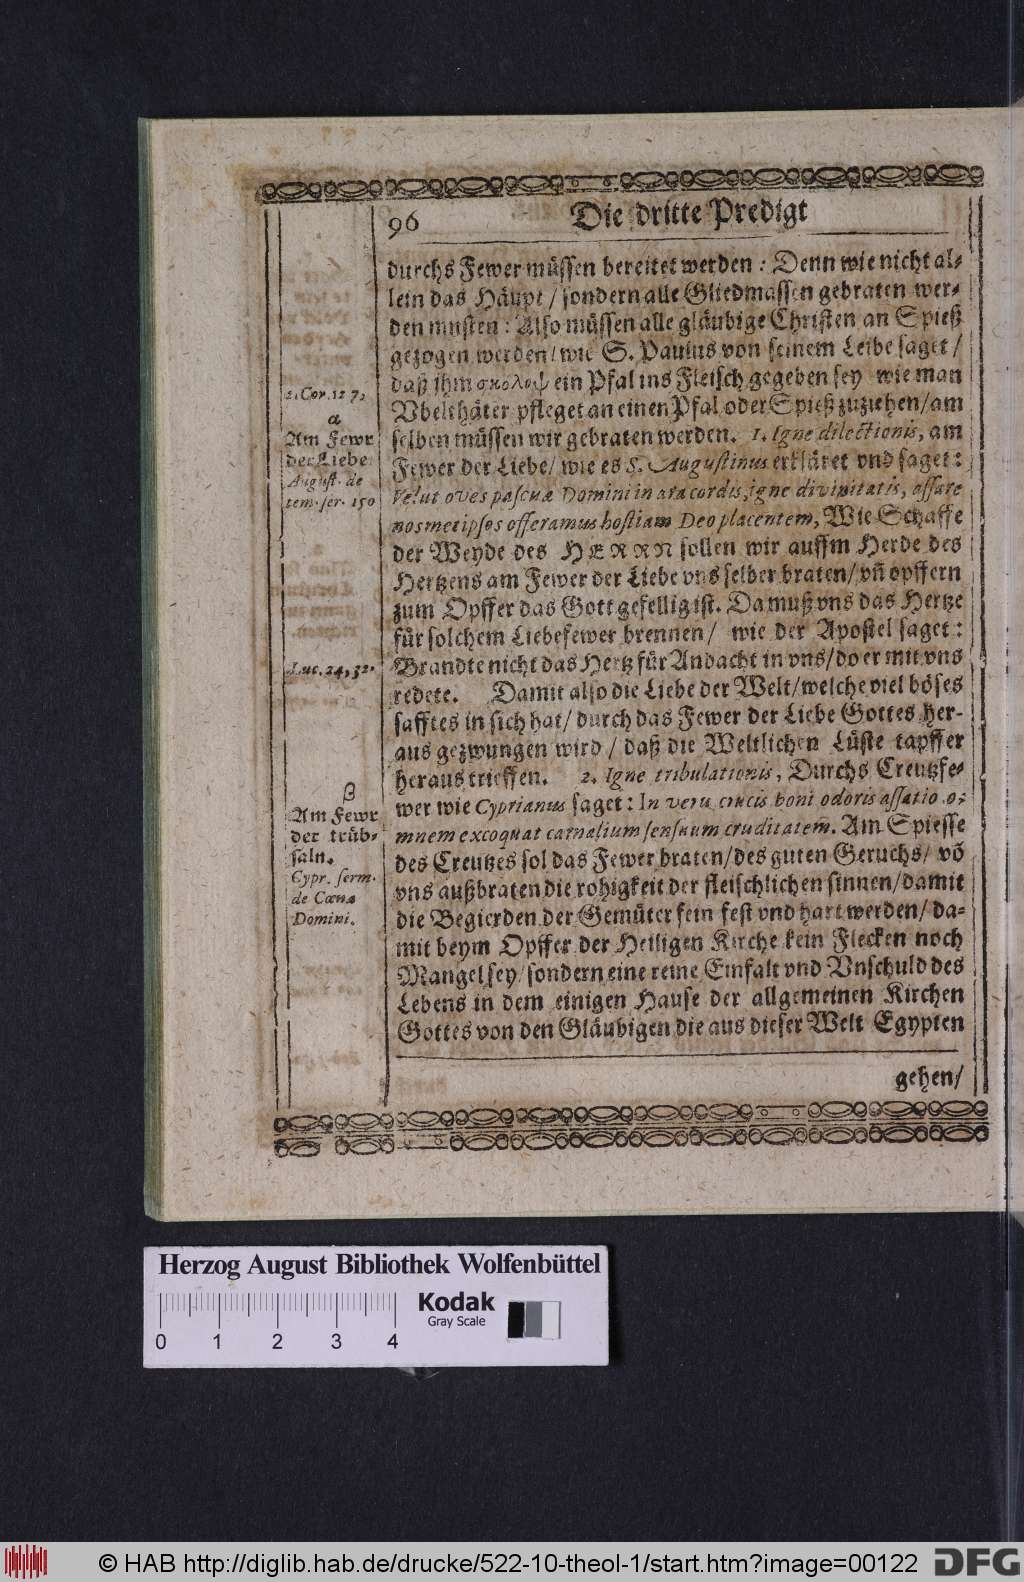 96
Die dritte Predigt
durchs Fewer müssen bereitet werden : Denn wie nicht al-
lein das Häupt / sondern alle Gliedmassen gebraten wer-
den musten : Also müssen alle gläubige Christen an Spieß
gezogen werden / wie S. Paulus von seinem Leibe saget /
daß jhm σκολοψ ein Pfal ins Fleisch gegeben sey wie man
Vbelthäter pfleget an einen Pfal oder Spieß zuziehen / am
selben müssen wir gebraten werden. 1. Igne dilectionis, am
Fewer der Liebe / wie es S. Augustinus erkläret vnd saget :
Velut oves pascuæ Domini in ara cordis, igne divinitatis, assare
nosmetipsos offeramus hostiam Deo placentem, Wie Schaffe
der Weyde des HERRN sollen wir auffm Herde des
Hertzens am Fewer der Liebe vns selber braten / vñ opffern
zum Opffer das Gott gefellig ist. Da muß vns das Hertze
für solchem Liebefewer brennen / wie der Apostel saget :
Brandte nicht das Hertz für Andacht in vns / do er mit vns
redete. Damit also die Liebe der Welt / welche viel böses
safftes in sich hat / durch das Fewer der Liebe Gottes her-
aus gezwungen wird / daß die Weltlichen Lüste tapffer
heraus trieffen. 2. Igne tribulationis, Durchs Creutzfe-
wer wie Cyprianus saget : In veru crucis boni odoris assatio o-
mnem excoquat carnalium sensuum cruditatem. Am Spiesse
des Creutzes sol das Fewer braten / des guten Geruchs / võ
vns außbraten die rohigkeit der fleischlichen sinnen / damit
die Begierden der Gemüter fein fest vnd hart werden / da-
mit beym Opffer der Heiligen Kirche kein Flecken noch
Mangel sey / sondern eine reine Einfalt vnd Vnschuld des
Lebens in dem einigen Hause der allgemeinen Kirchen
Gottes von den Gläubigen die aus dieser Welt Egypten
gehen /
2. Cor. 12 7.
α
Am Fewr
der Liebe
August. de
tem. ser. 150
Luc. 24, 32.
β
Am Fewr
der trüb-
saln.
Cypr. serm.
de Cœna
Domini.
Herzog August Bibliothek Wolfenbüttel
Kodak
Gray Scale
0 1 2 3 4
© HAB http://diglib.hab.de/drucke/522-10-theol-1/start.htm?image=00122
DFG